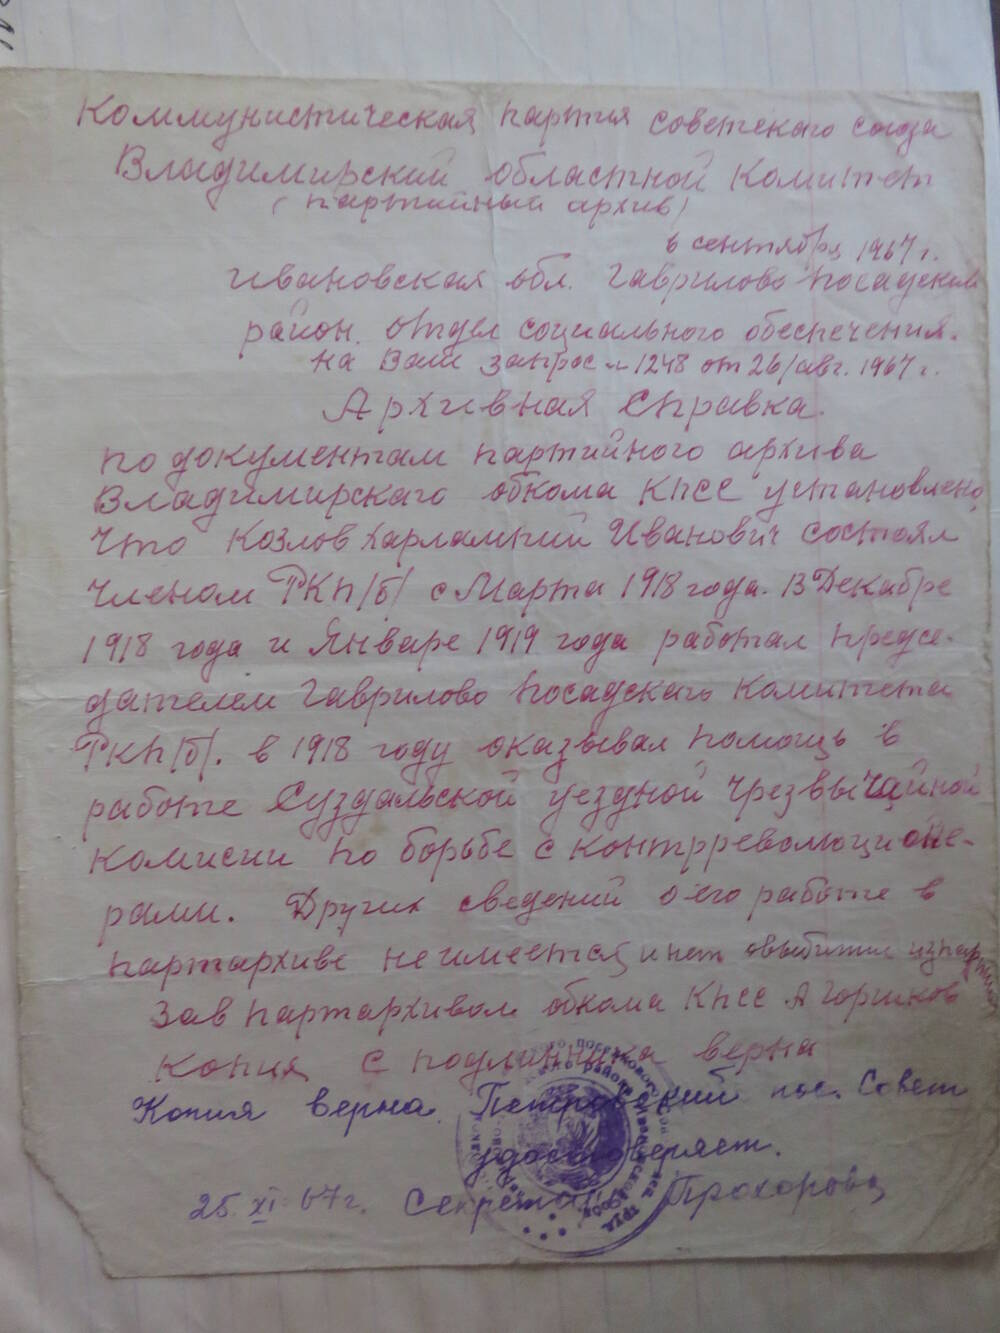 Коммунистическая партия советского союза
Владимирский областной комитет
(партийный архив)
6 сентября 1967 г.
Ивановская обл. Гаврилово посадский
район. отдел социального обеспечения.
на Ваш запрос № 1248 от 26/авг. 1967 г.
Архивная справка.
по документам партийного архива
Владимирскаго обкома КПСС установлено,
что Козлов Харлампий Иванович состоял
членом РКП/б/ с Марта 1918 года. В Декабре
1918 года и Январе 1919 года работал предсе-
дателем Гаврилово посадскаго комитета
РКП/б/. в 1918 году оказывал помощь в
работе Суздальской уездной чрезвычайной
комисии по борьбе с контрреволюционе-
рами. Других сведений о его работе в
партархиве не имеется, и нет о выбитии из партии
Зав партархивом обкома КПСС А Горшков
Копия с подлинника верна
Копия верна. Петровский пос. Совет
удостоверяет.
25 XI 67 г. Секретарь Прохорова